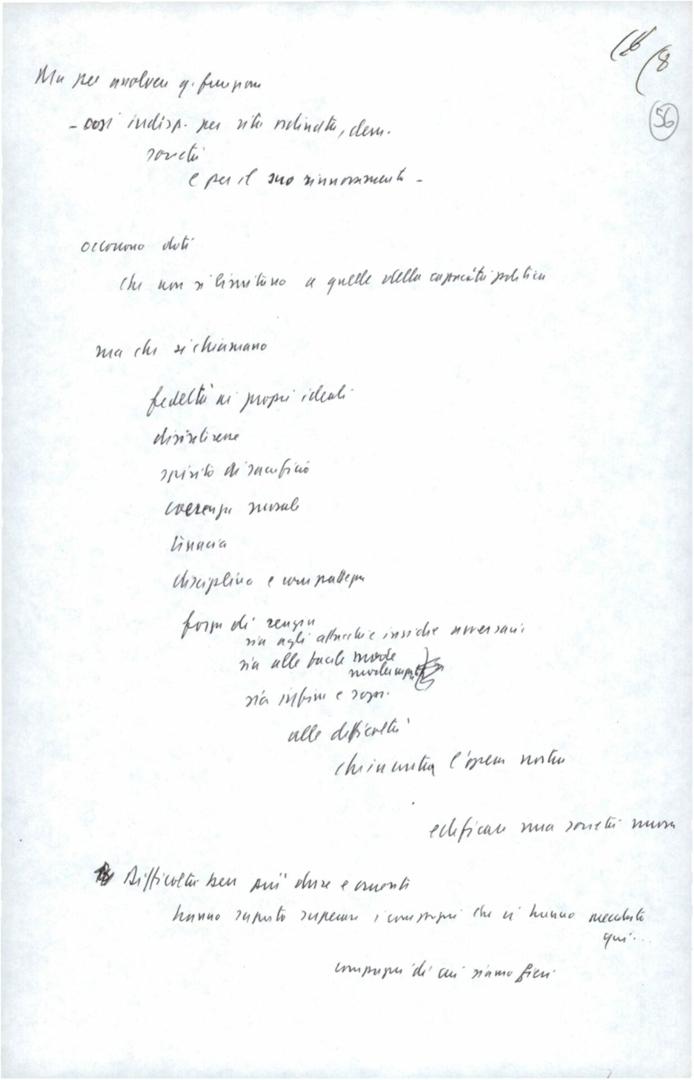 18
56
Ma per assolvere q. funzioni
- così indisp. per vita ordinata, dem.
società
e per il suo rinnovamento -
occorrono doti
che non si limitano a quelle della capacità politica
ma che si chiamano
fedeltà ai propri ideali
spirito di sacrificio
coerenza morale
tenacia
disciplina e compattezza
forza di
sia agli attacchi e insidie avversari
sia alle facile mode
sia infine e sopr.
alle difficoltà
che incontra l'opera nostra
edificare una società nuova
Difficoltà ben più dure e cruenti
hanno saputo superare i compagni che ci hanno preceduto
qui...
compagni di cui siamo fieri